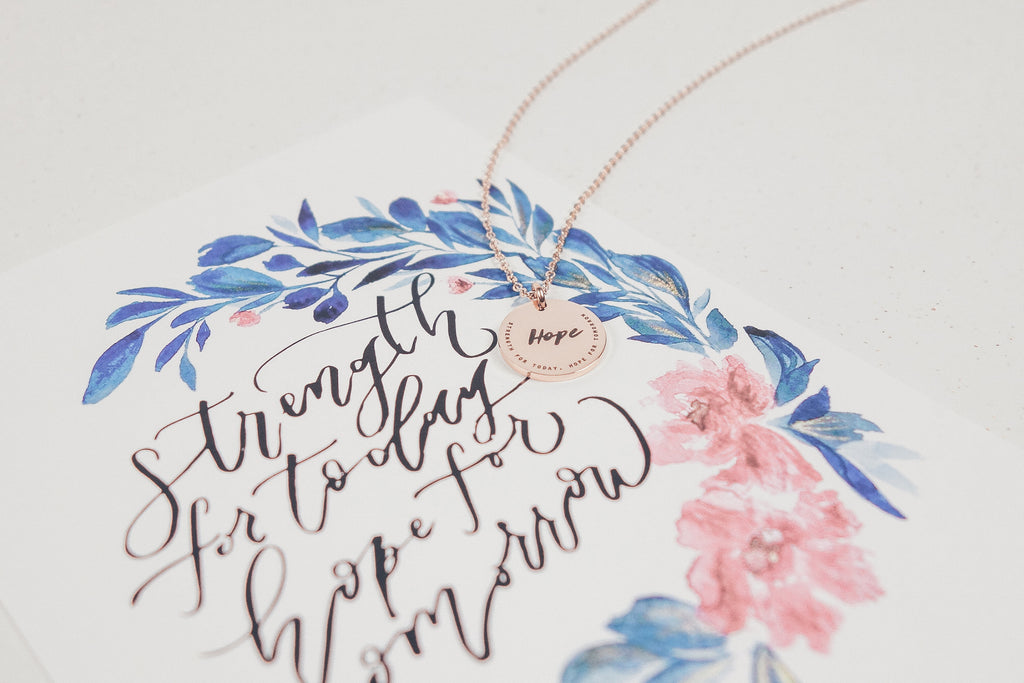 Hope
STRENGTH FOR TODAY, HOPE FOR TOMORROW
strength
for today
hope for
omorrow